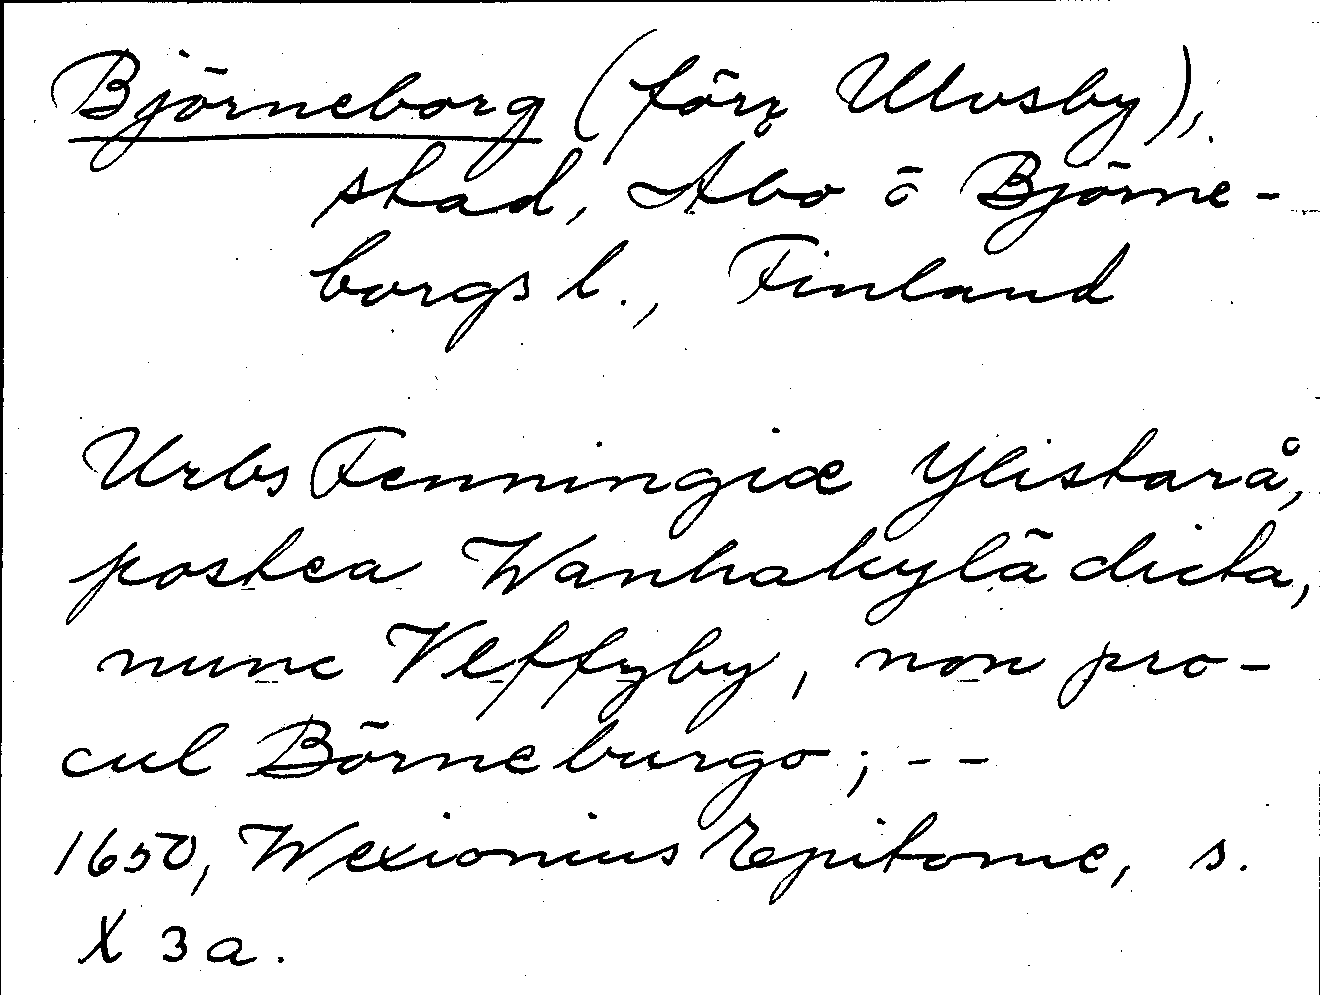 Björneborg (förr Ulvsby),
stad, Åbo ö Björne-
borgs l., Finland
Urbs Fenningiæ Ylistarå,
postea Wanhakylä dicta,
nunc Vlffzby, non pro-
cul Börneburgo; --
1650, Wexionius Epitome, s.
X 3 a.